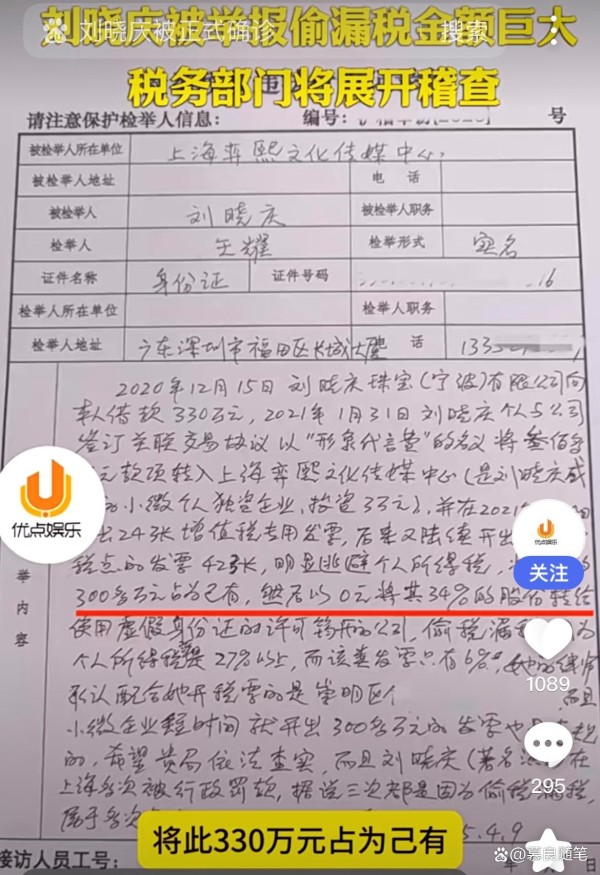 刘晓庆被举报偷漏税金额巨大
刘晓庆被正式确诊
搜索
税务部门将展开稽查
请注意保护检举人信息: 编号: 号
被检举人所在单位 上海弈熙文化传媒中心
被检举人地址 电 话
被检举人 刘晓庆 被检举人职务
检举人 王耀 检举形式 实名
证件名称 身份证 证件号码 16
检举人所在单位 检举人职务
检举人地址 广东深圳市福田区长城大厦 话 133
2020年12月15日刘晓庆珠宝(宁波)有限公司向
本人借款330万元,2021年1月31日刘晓庆个人与公司
签订关联交易协议以"形象代言费"的名义将叁佰多
元款项转入上海弈熙文化传媒中心(是刘晓庆成
的小微个人独资企业,投资3万元),并在2021
出243张增值税专用发票,后来又陆续开出
税点的发票423张,明显逃避个人所得税,
300多万元占为己有,然后以0元将其34%的股份转给
使用虚假身份证的许可等开的公司,偷税漏税 为
个人所得税是27%以上,而该类发票只有6%,她的律师
承认配合她开税票的是崇明区 而且
小微企业短时间就开出300多万元的发票也是
的,希望贵局依法查实 而且刘晓庆(著名 在
上海多次被行政罚款,据说三次都是因为偷税漏税,
属于多次
5.4.9
举
内
容
接访人员工号:
优点娱乐
优点娱乐
关注
1089
295
将此330万元占为己有
@嘉良随笔